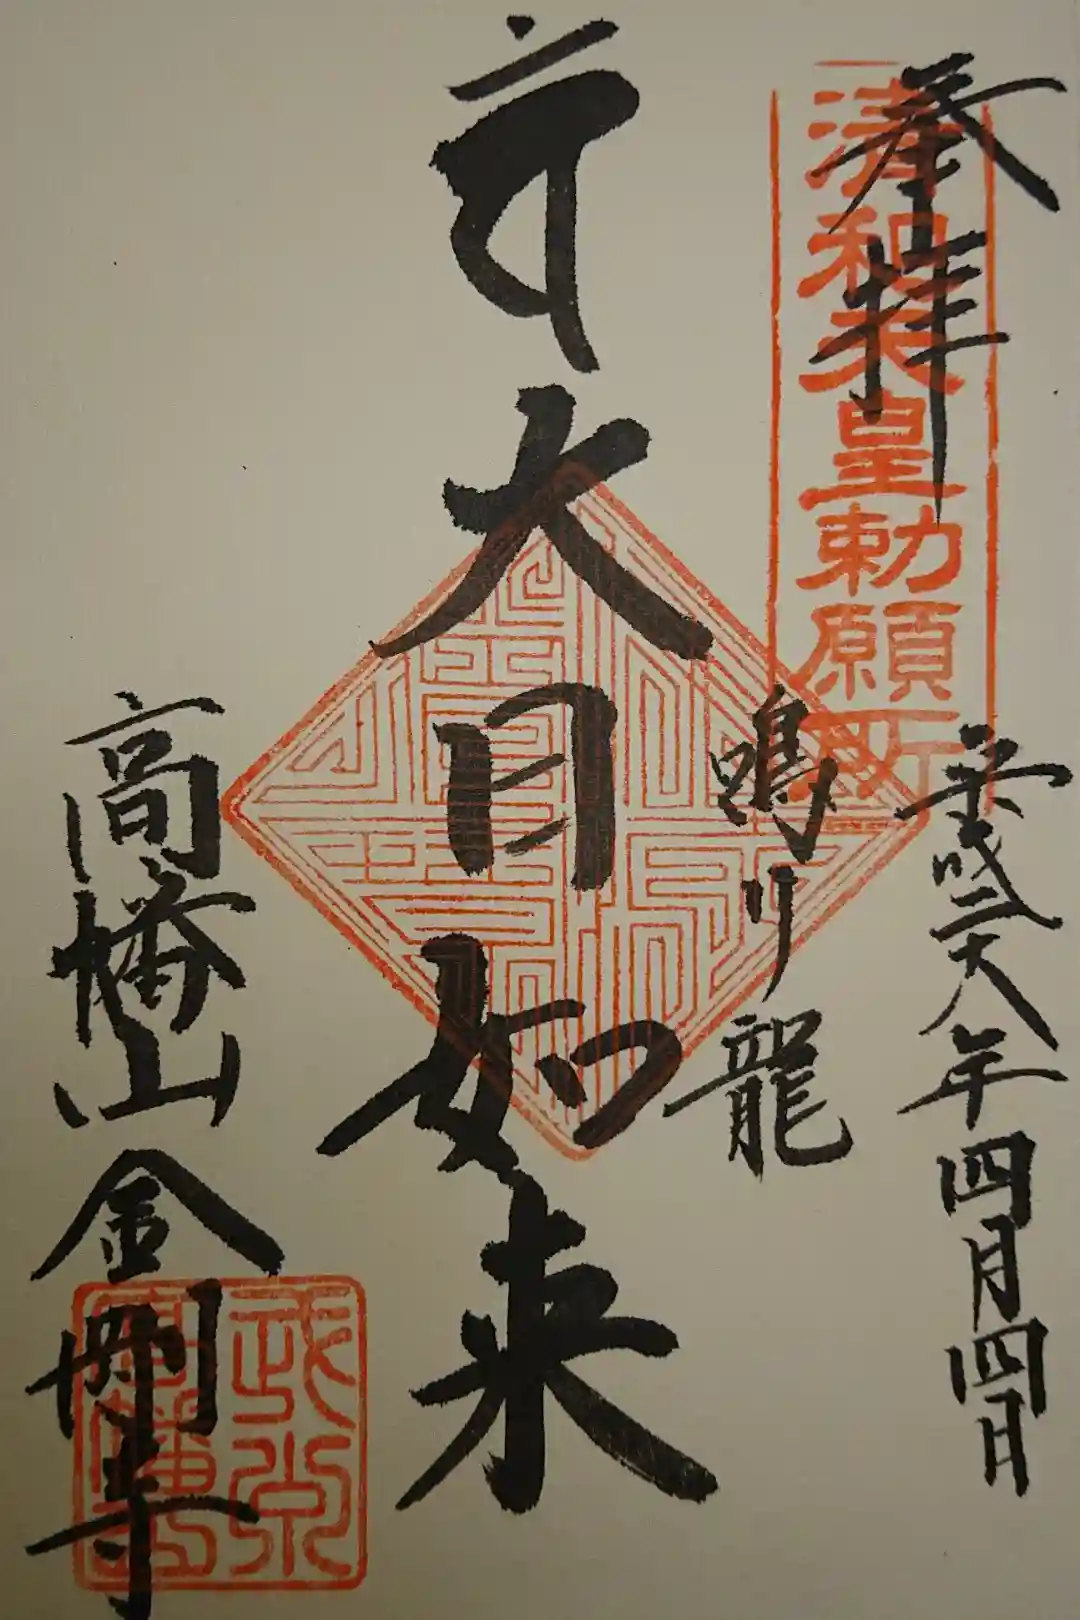 奉拝
清和天皇勅願所
平成二十八年四月四日
鳴り龍
大日如来
高幡山金剛寺